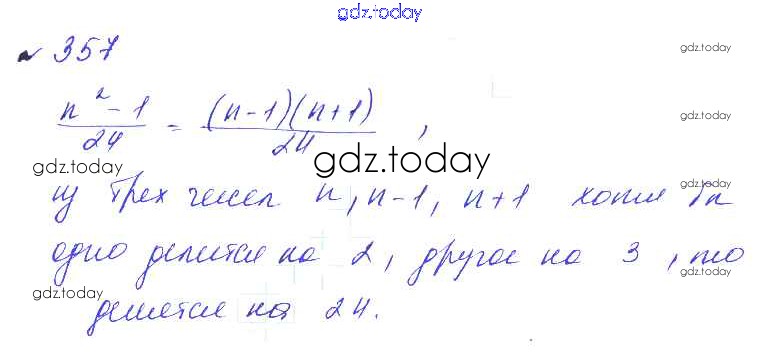 gdz.today
№ 357
gdz.today
n² - 1 / 24 = (n-1)(n+1) / 24 ,
gdz.today
gdz.today
gdz.today
gdz.today
из трех чисел n, n-1, n+1 хотя бы
одно делится на 2, другое на 3, то
gdz.today
gdz.today
делится на 24.